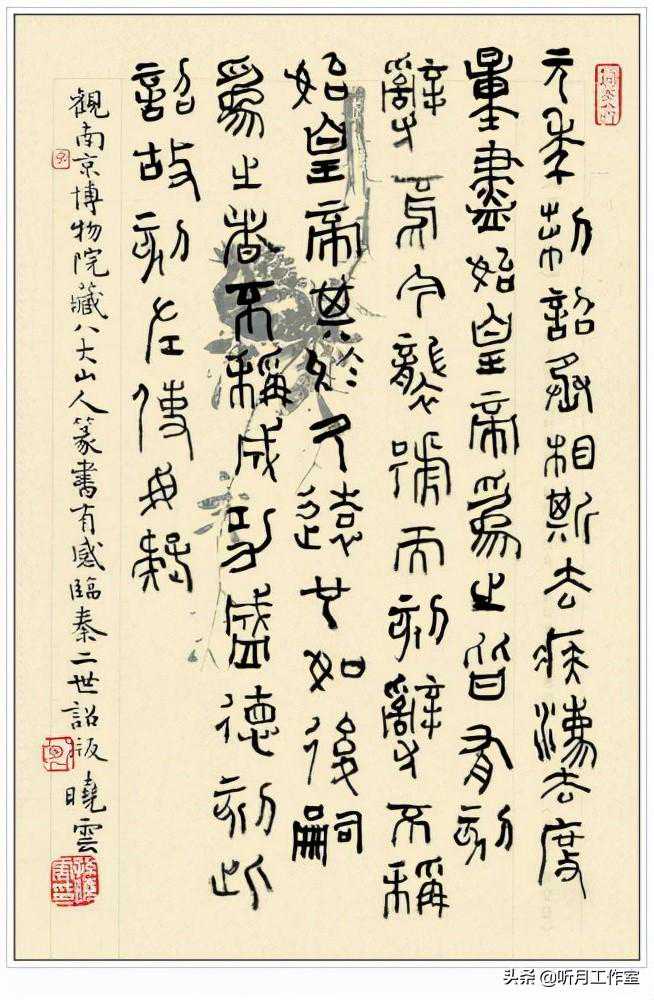 元年制詔丞相斯去疾灋度
量盡始皇帝為之皆有刻
辭焉今襲號而刻辭不稱
始皇帝其於久遠也如後嗣
為之者不稱成功盛德刻此
詔故刻左使毋疑
觀南京博物院藏八大山人篆書有感臨秦二世詔版 曉雲
头条 @听月工作室